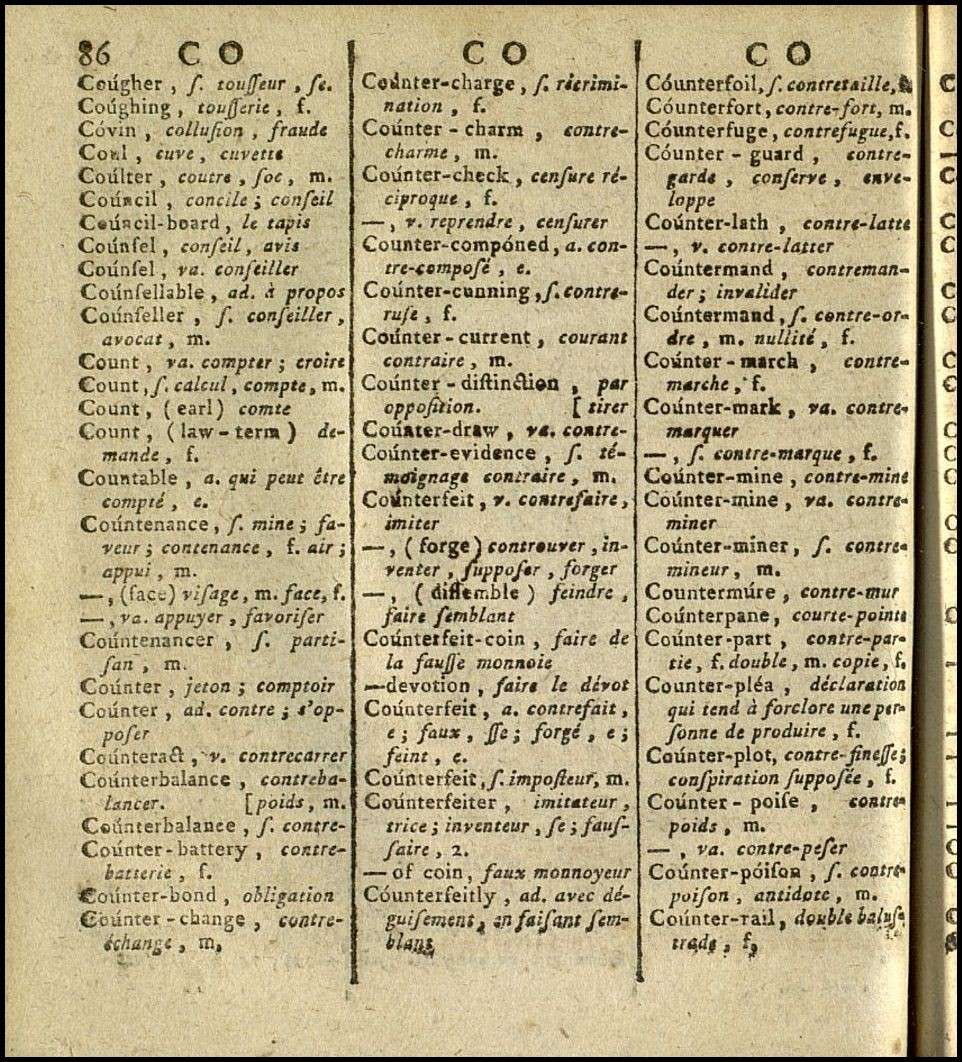 86 C O
Coúgher, ſ. touſſeur, ſe.
Coúghing, touſſerie, f.
Cóvin, colluſion, fraude
Cowl, cuve, cuvette
Coúlter, coutre, ſoc, m.
Coúncil, concile; conſeil
Coúncil-board, le tapis
Coúnſel, conſeil, avis
Coúnſel, va. conſeiller
Coúnſellable, ad. à propos
Coúnſeller, ſ. conſeiller,
avocat, m.
Count, va. compter; croire
Count, ſ. calcul, compte, m.
Count, (earl) comte
Count, (law-term) de-
mande, f.
Countable, a. qui peut être
compté, e.
Coúntenance, ſ. mine; fa-
veur; contenance, f. air;
appui, m.
—, (face) viſage, m. face, f.
—, va. appuyer, favoriſer
Coúntenancer, ſ. parti-
ſan, m.
Coúnter, jeton; comptoir
Coúnter, ad. contre; s'op-
poſer
Coúnteract, v. contrecarrer
Coúnterbalance, contreba-
lancer. [poids, m.
Coúnterbalance, ſ. contre-
Coúnter-battery, contre-
batterie, f.
Coúnter-bond, obligation
Coúnter-change, contre-
échange, m.
C O
Coúnter-charge, ſ. récrimi-
nation, f.
Coúnter-charm, contre-
charme, m.
Coúnter-check, cenſure ré-
ciproque, f.
—, v. reprendre, cenſurer
Coúnter-compóned, a. con-
tre-compoſé, e.
Coúnter-cunning, ſ. contre-
ruſe, f.
Coúnter-current, courant
contraire, m.
Coúnter-diſtinction, par
oppoſition. [tirer
Coúnter-draw, va. contre-
Coúnter-evidence, ſ. té-
moignage contraire, m.
Coúnterfeit, v. contrefaire,
imiter
—, (forge) controuver, in-
venter, ſuppoſer, forger
—, (diſſemble) feindre,
faire ſemblant
Coúnterfeit-coin, faire de
la fauſſe monnoie
—devotion, faire le dévot
Coúnterfeit, a. contrefait,
e; faux, ſſe; forgé, e;
feint, e.
Coúnterfeit, ſ. impoſteur, m.
Coúnterfeiter, imitateur,
trice; inventeur, ſe; fauſ-
ſaire, 2.
— of coin, faux monnoyeur
Coúnterfeitly, ad. avec dé-
guiſement, en faiſant ſem-
blant
C O
Cóunterfoil, ſ. contretaille, f.
Cóunterfort, contre-fort, m.
Cóunterfuge, contrefugue, f.
Cóunter-guard, contre-
garde, conſerve, enve-
loppe
Coúnter-lath, contre-latte
—, v. contre-latter
Coúntermand, contreman-
der; invalider
Coúntermand, ſ. contre-or-
dre, m. nullité, f.
Coúnter-march, contre-
marche, f.
Coúnter-mark, va. contre-
marquer
—, ſ. contre-marque, f.
Coúnter-mine, contre-mine
Coúnter-mine, va. contre-
miner
Coúnter-miner, ſ. contre-
mineur, m.
Countermúre, contre-mur
Coúnterpane, courte-pointe
Coúnter-part, contre-par-
tie, f. double, m. copie, f.
Counter-pléa, déclaration
qui tend à forclore une per-
ſonne de produire, f.
Coúnter-plot, contre-fineſſe;
conſpiration ſuppoſée, f.
Coúnter-poiſe, contre-
poids, m.
—, va. contre-peſer
Coúnter-póiſon, ſ. contre-
poiſon, antidote, m.
Coúnter-rail, double baluſ-
trade, f.